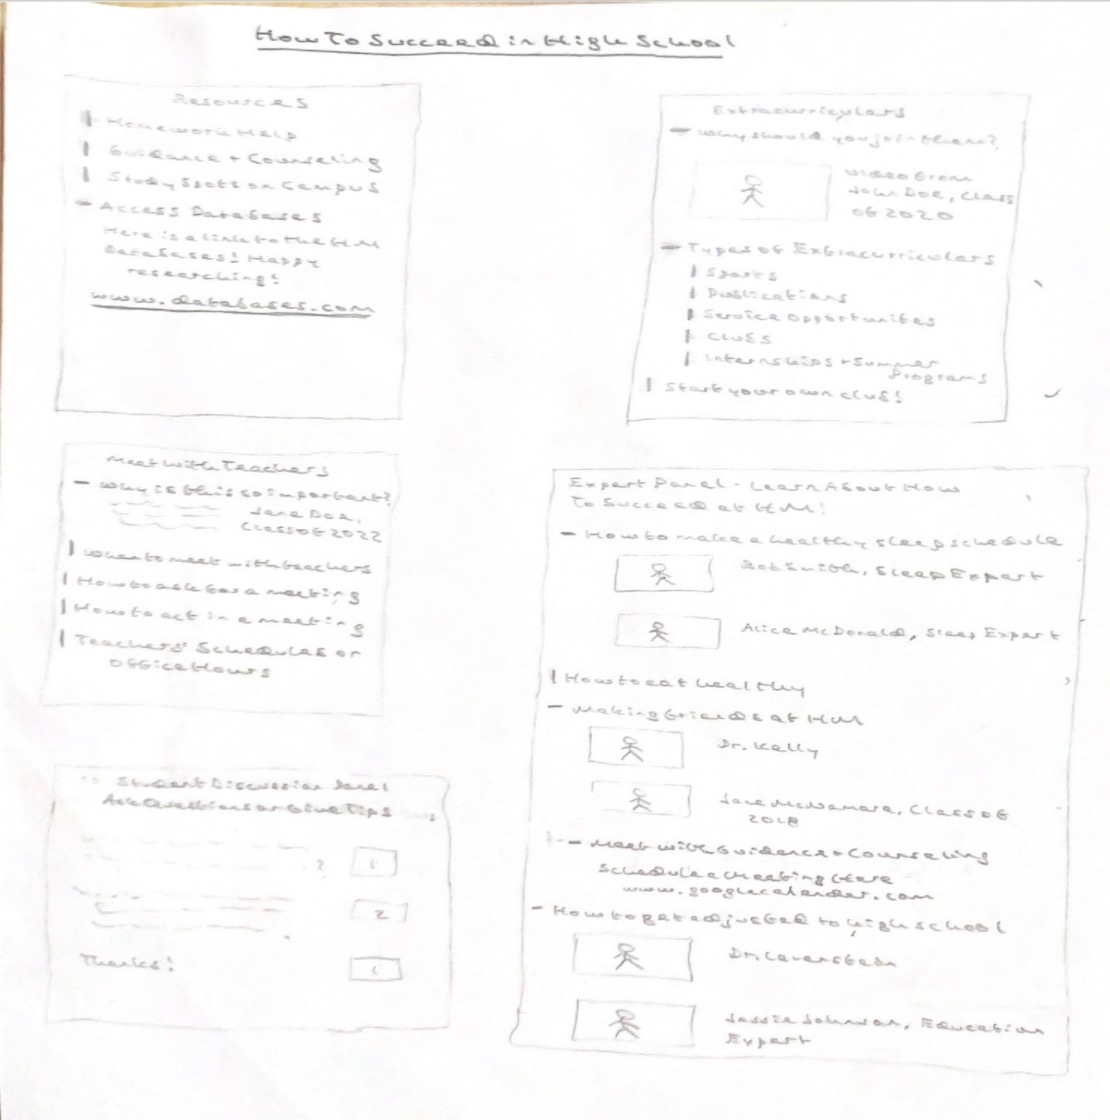 How To Succeed in High School
Resources
Homework Help
Guidance + Counseling
Study Spots on Campus
Access Databases
Here is a link to the HM
Databases! Happy
researching!
www.databases.com
Extracurriculars
Why should you join them?
Video from
John Doe, Class
of 2020
Types of Extracurriculars
Sports
Publications
Service Opportunites
Clubs
Internships + Summer
Programs
Start your own club!
Meet with Teachers
Why is this so important?
Jane Doe,
Class of 2022
When to meet with teachers
How to ask for a meeting
How to act in a meeting
Teachers' Schedules or
Office Hours
Student Discussion Panel
Ask Questions or Give Tips
? 1
2
Thanks! 1
Expert Panel - Learn About How
To Succeed at HM!
How to make a healthy sleep schedule
Bob Smith, Sleep Expert
Alice McDonald, Sleep Expert
How to eat healthy
Making friends at HM
Dr. Kelly
Jane McNamara, Class of
2018
Meet with Guidance + Counseling
Schedule a meeting Here
www.googlecalendar.com
How to get adjusted to high school
Dr.
Jessie Johnson, Education
Expert